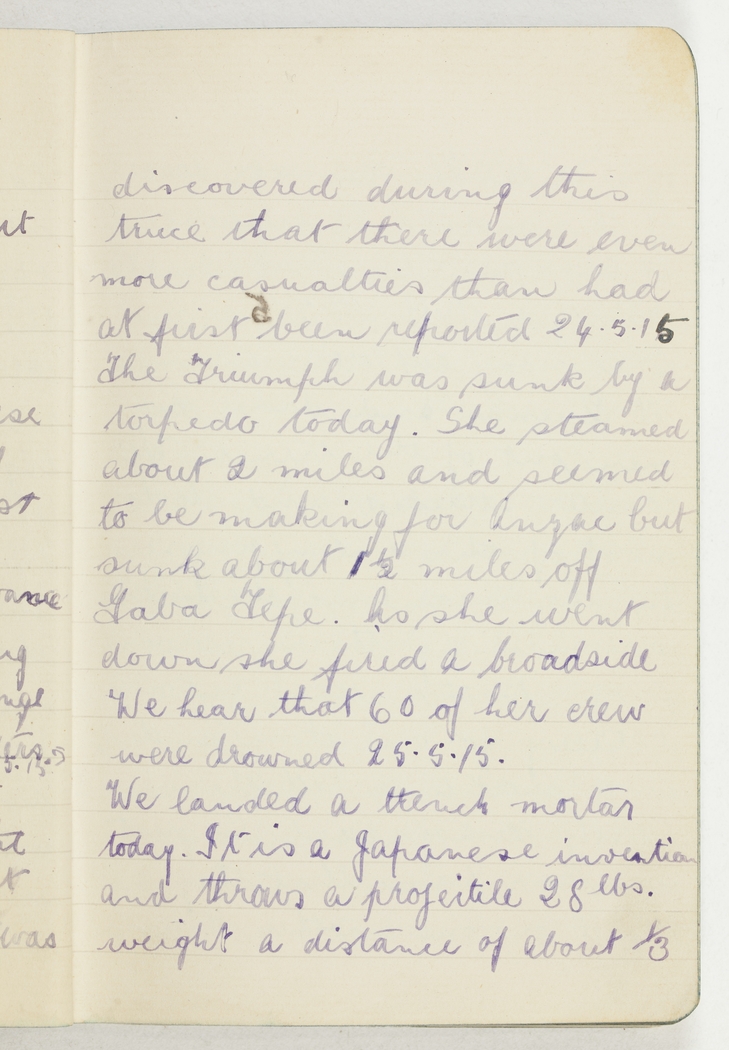 discovered during this
truce that there were even
more casualties than had
at first been reported 24.5.15
The Triumph was sunk by a
torpedo today. She steamed
about 2 miles and seemed
to be making for Anzac but
sunk about 1½ miles off
Gaba Tepe. As she went
down she fired a broadside
We hear that 60 of her crew
were drowned 25.5.15.
We landed a trench mortar
today. It is a Japanese invention
and throws a projectile 28 lbs.
weight a distance of about ⅓